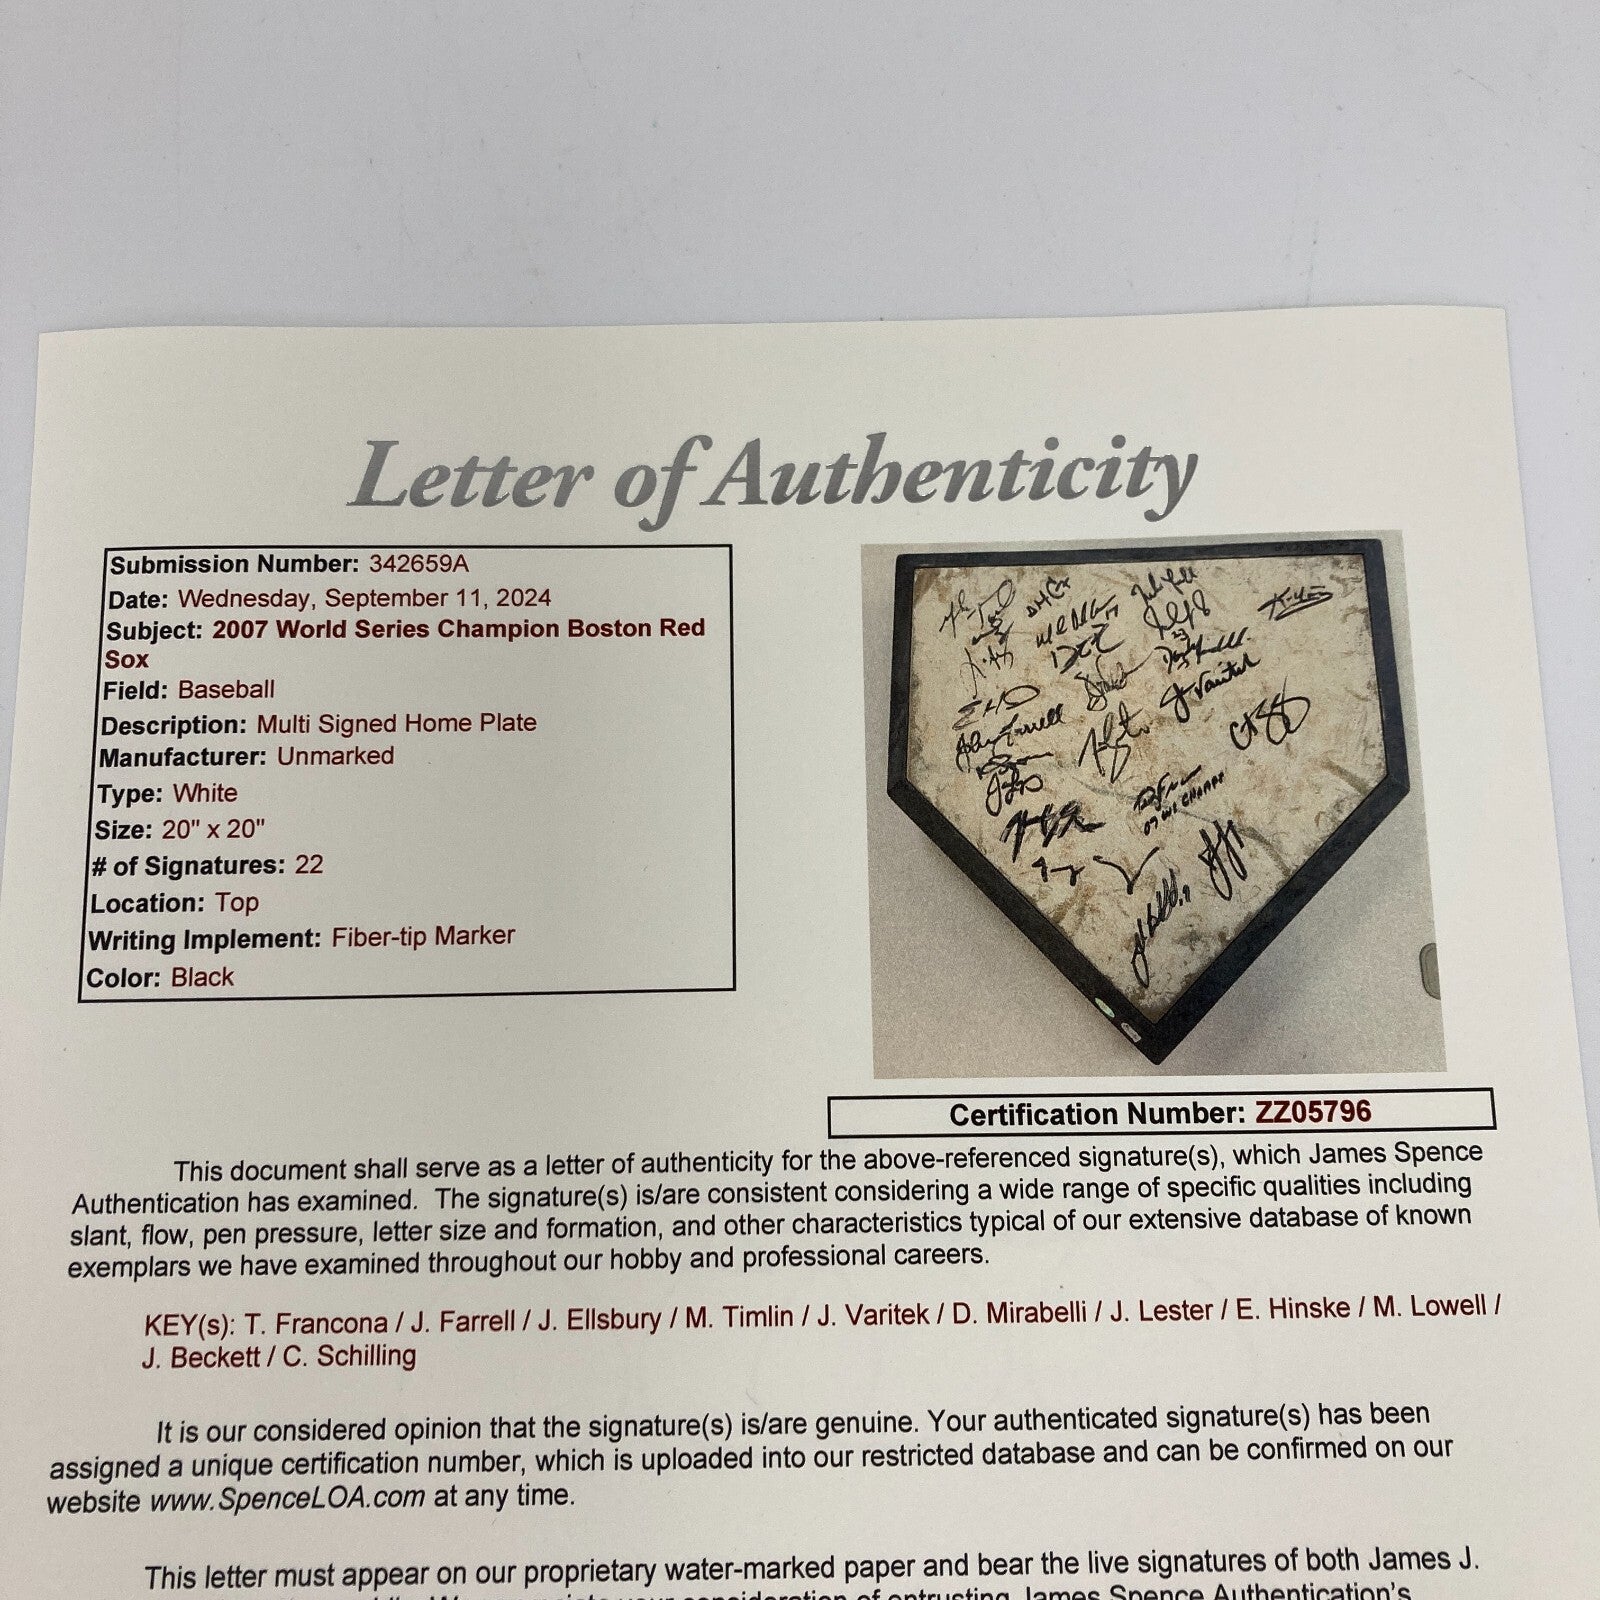 Letter of Authenticity
Submission Number: 342659A
Date: Wednesday, September 11, 2024
Subject: 2007 World Series Champion Boston Red
Sox
Field: Baseball
Description: Multi Signed Home Plate
Manufacturer: Unmarked
Type: White
Size: 20" x 20"
# of Signatures: 22
Location: Top
Writing Implement: Fiber-tip Marker
Color: Black
John Farrell
J Varitek
07 WS CHAMPS
Certification Number: ZZ05796
This document shall serve as a letter of authenticity for the above-referenced signature(s), which James Spence
Authentication has examined. The signature(s) is/are consistent considering a wide range of specific qualities including
slant, flow, pen pressure, letter size and formation, and other characteristics typical of our extensive database of known
exemplars we have examined throughout our hobby and professional careers.
KEY(s): T. Francona / J. Farrell / J. Ellsbury / M. Timlin / J. Varitek / D. Mirabelli / J. Lester / E. Hinske / M. Lowell /
J. Beckett / C. Schilling
It is our considered opinion that the signature(s) is/are genuine. Your authenticated signature(s) has been
assigned a unique certification number, which is uploaded into our restricted database and can be confirmed on our
website www.SpenceLOA.com at any time.
This letter must appear on our proprietary water-marked paper and bear the live signatures of both James J.
consideration of entrusting James Spence Authentication's